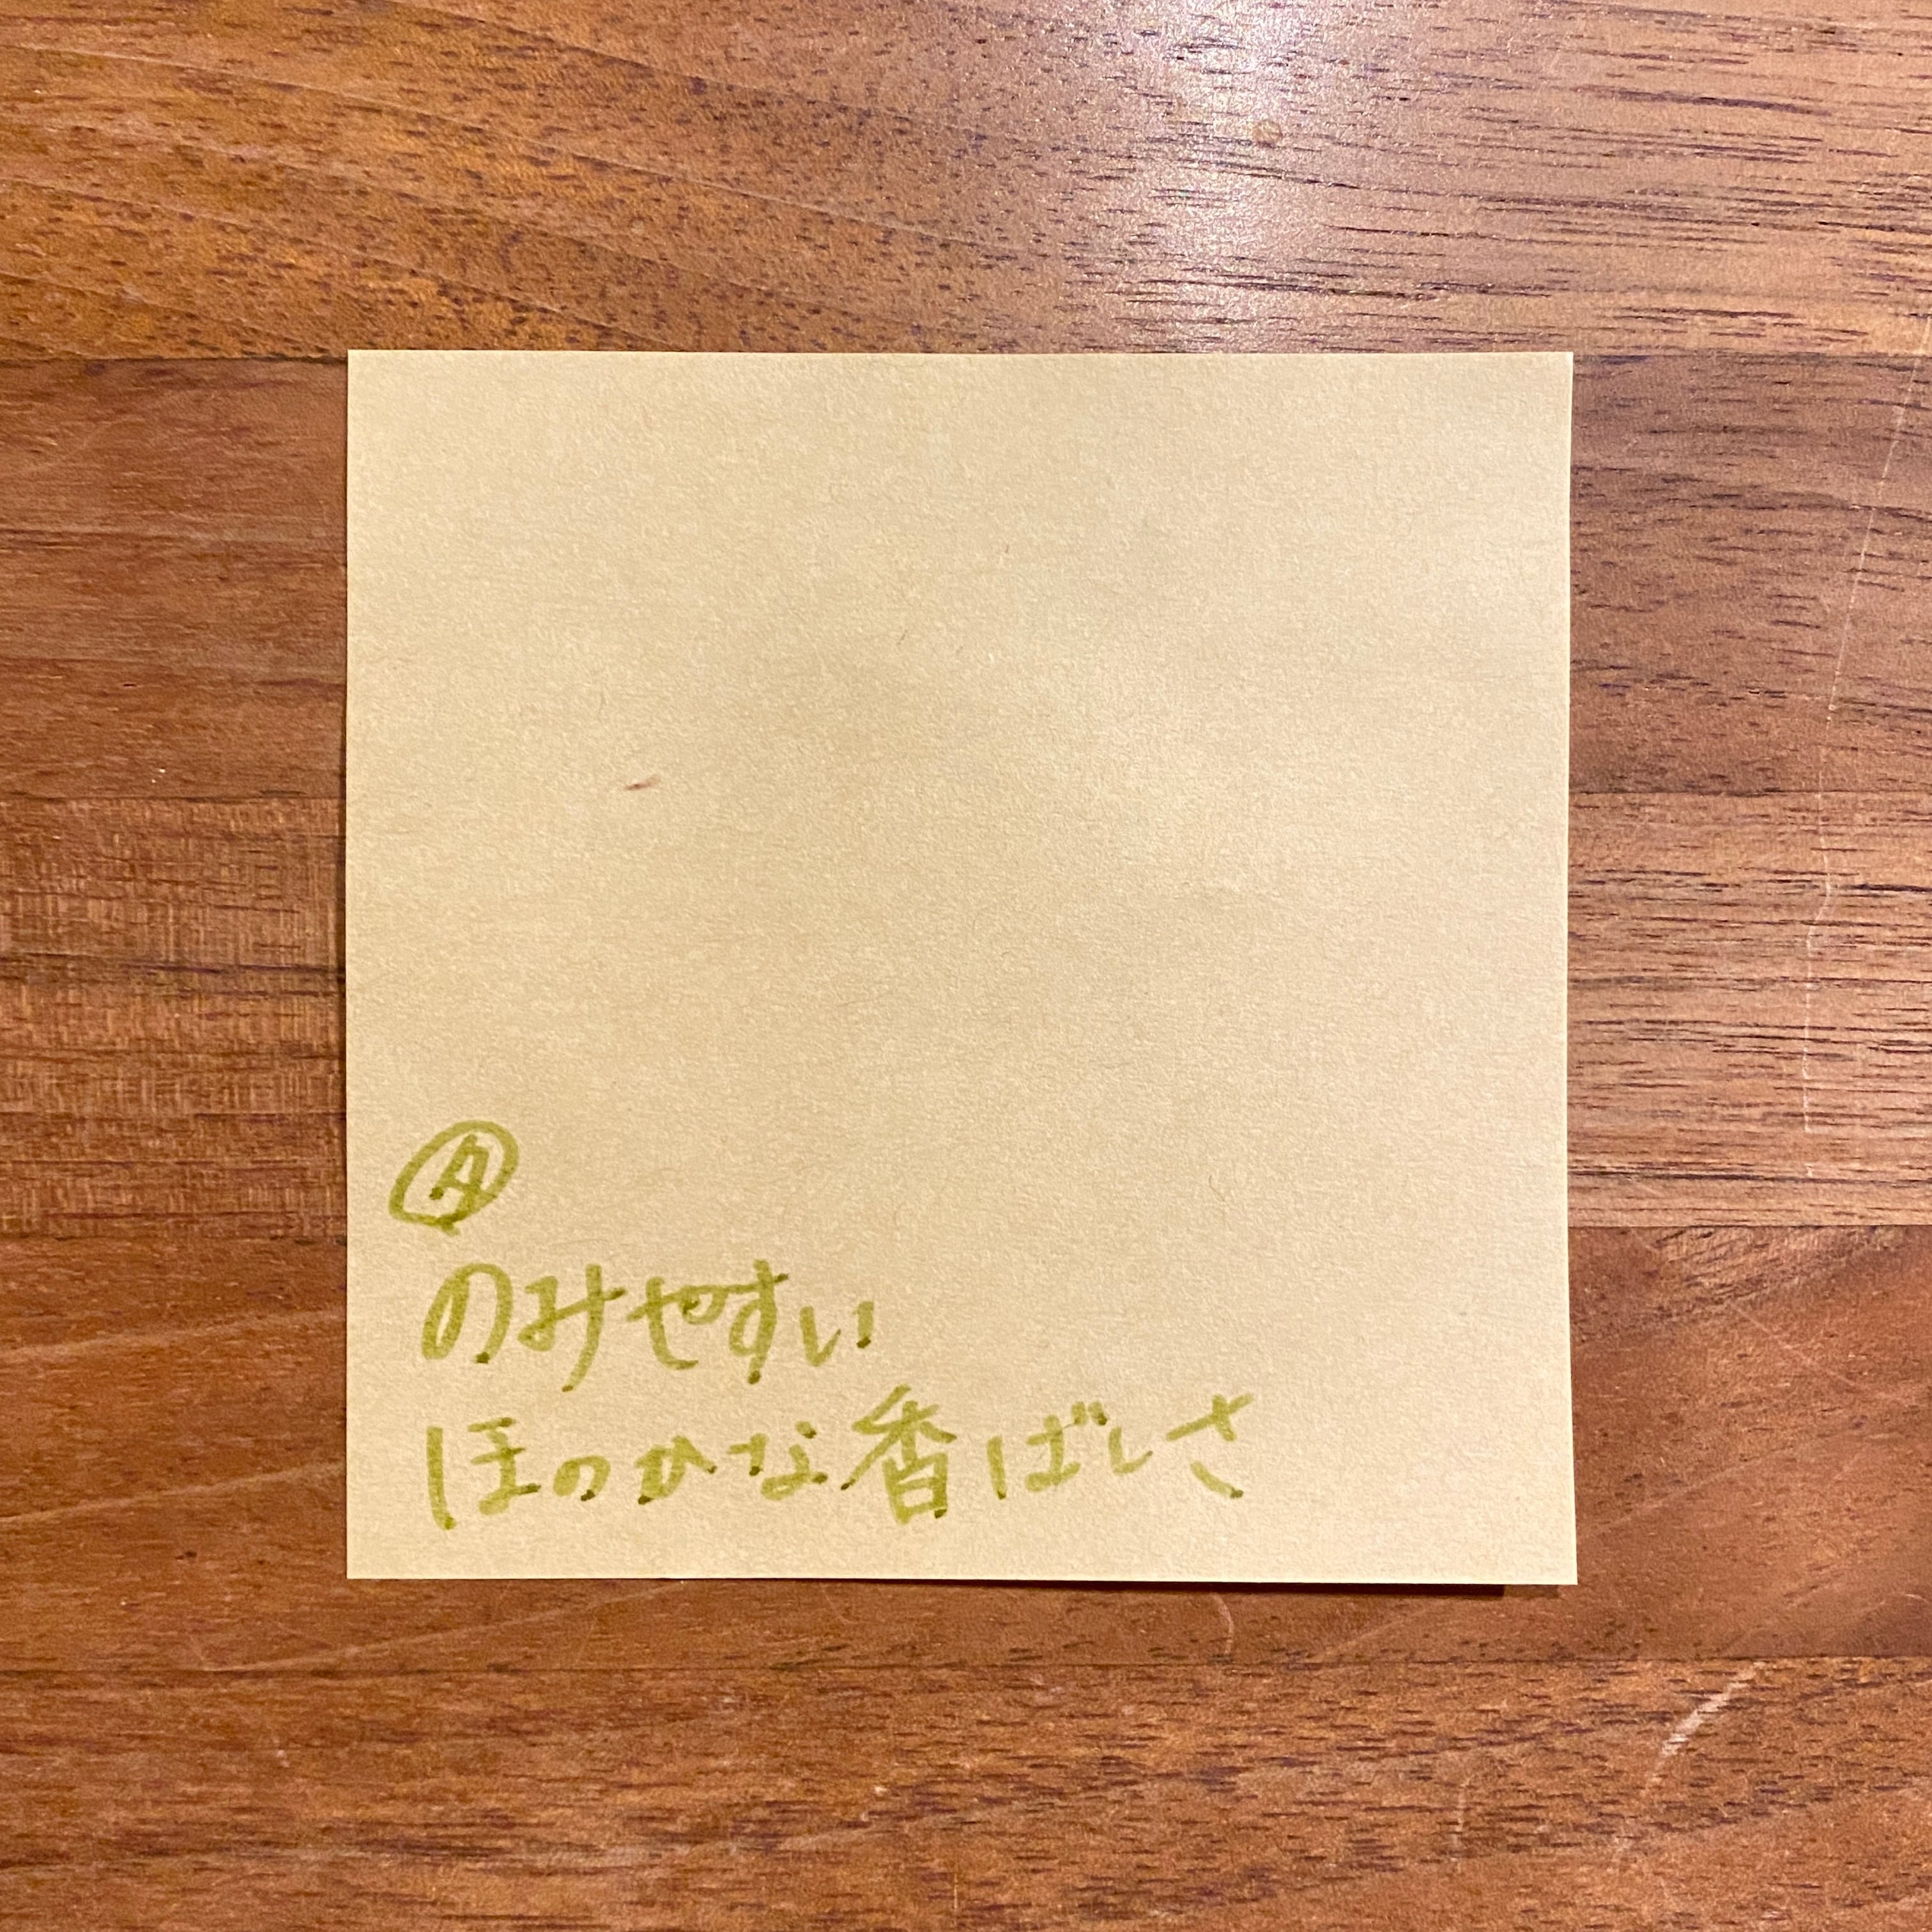 夕
のみやすい
ほのかな香ばしさ